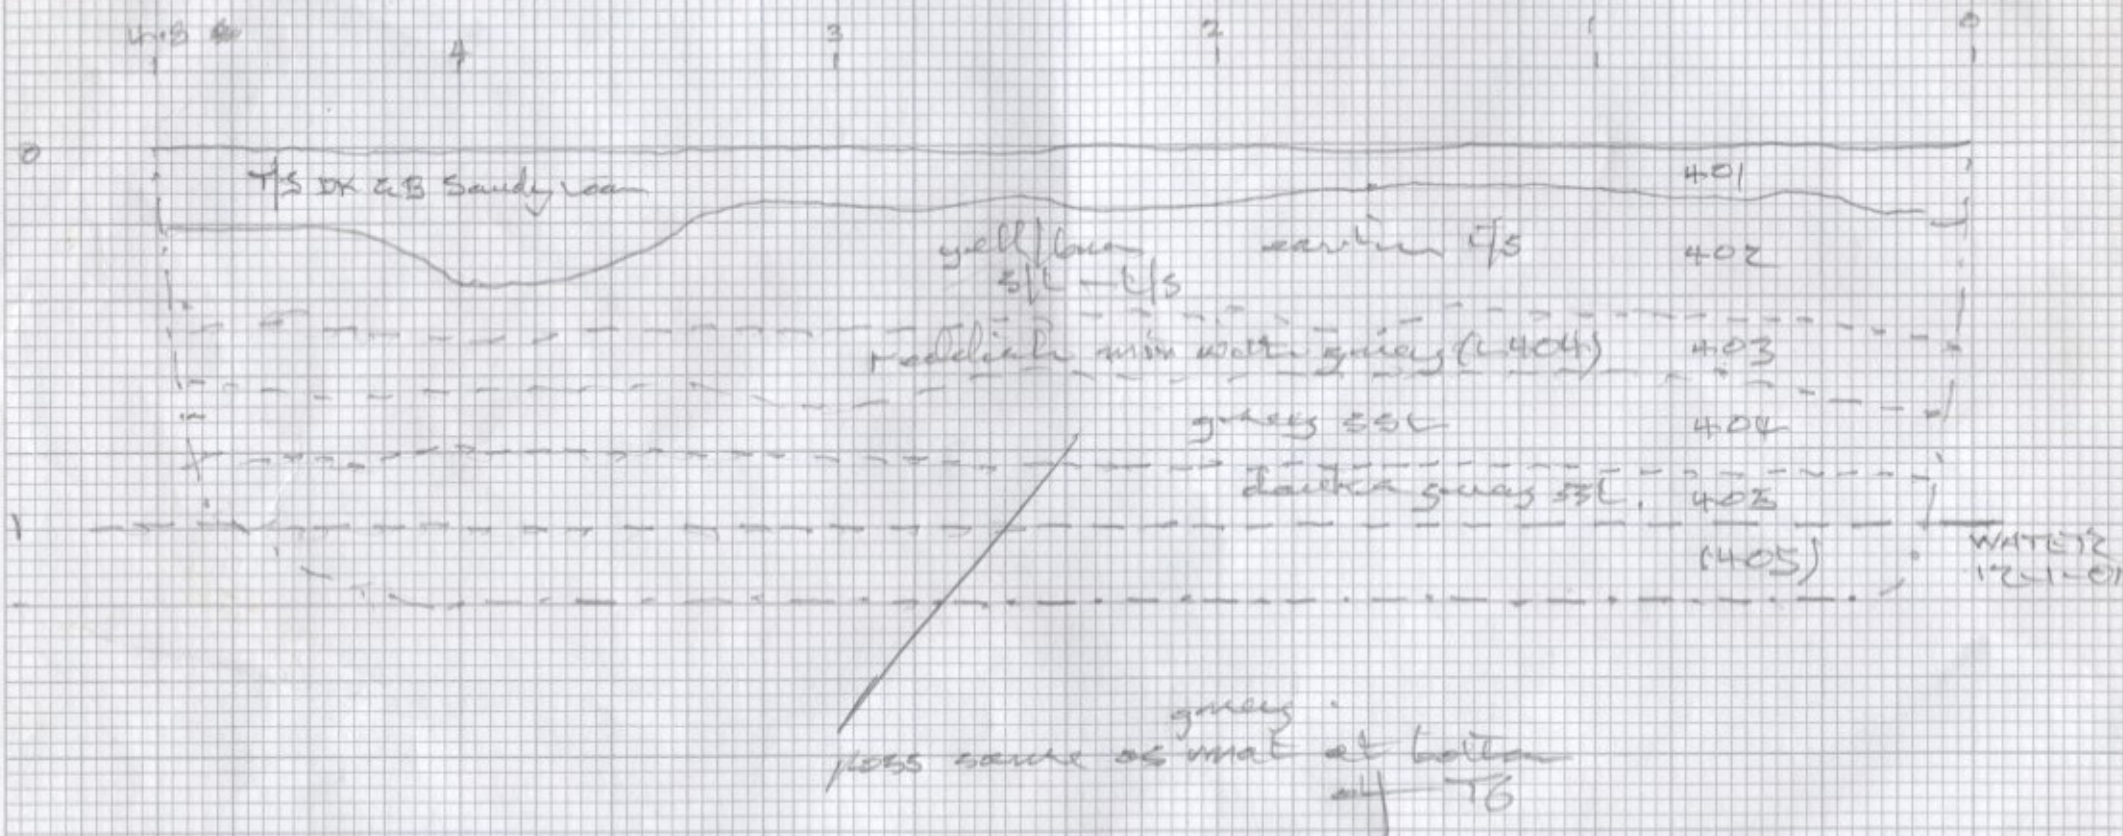 4.8 4 3 2 1 0
0
T/S DK GB Sandy loam 401
yell/brn earlier T/S 402
S/L - L/S
reddish mix with grey (L404) 403
grey SSL 404
darker grey SSL. 405
1
(405) WATER
12-1-01
grey
poss same as mat at bottom
of T6